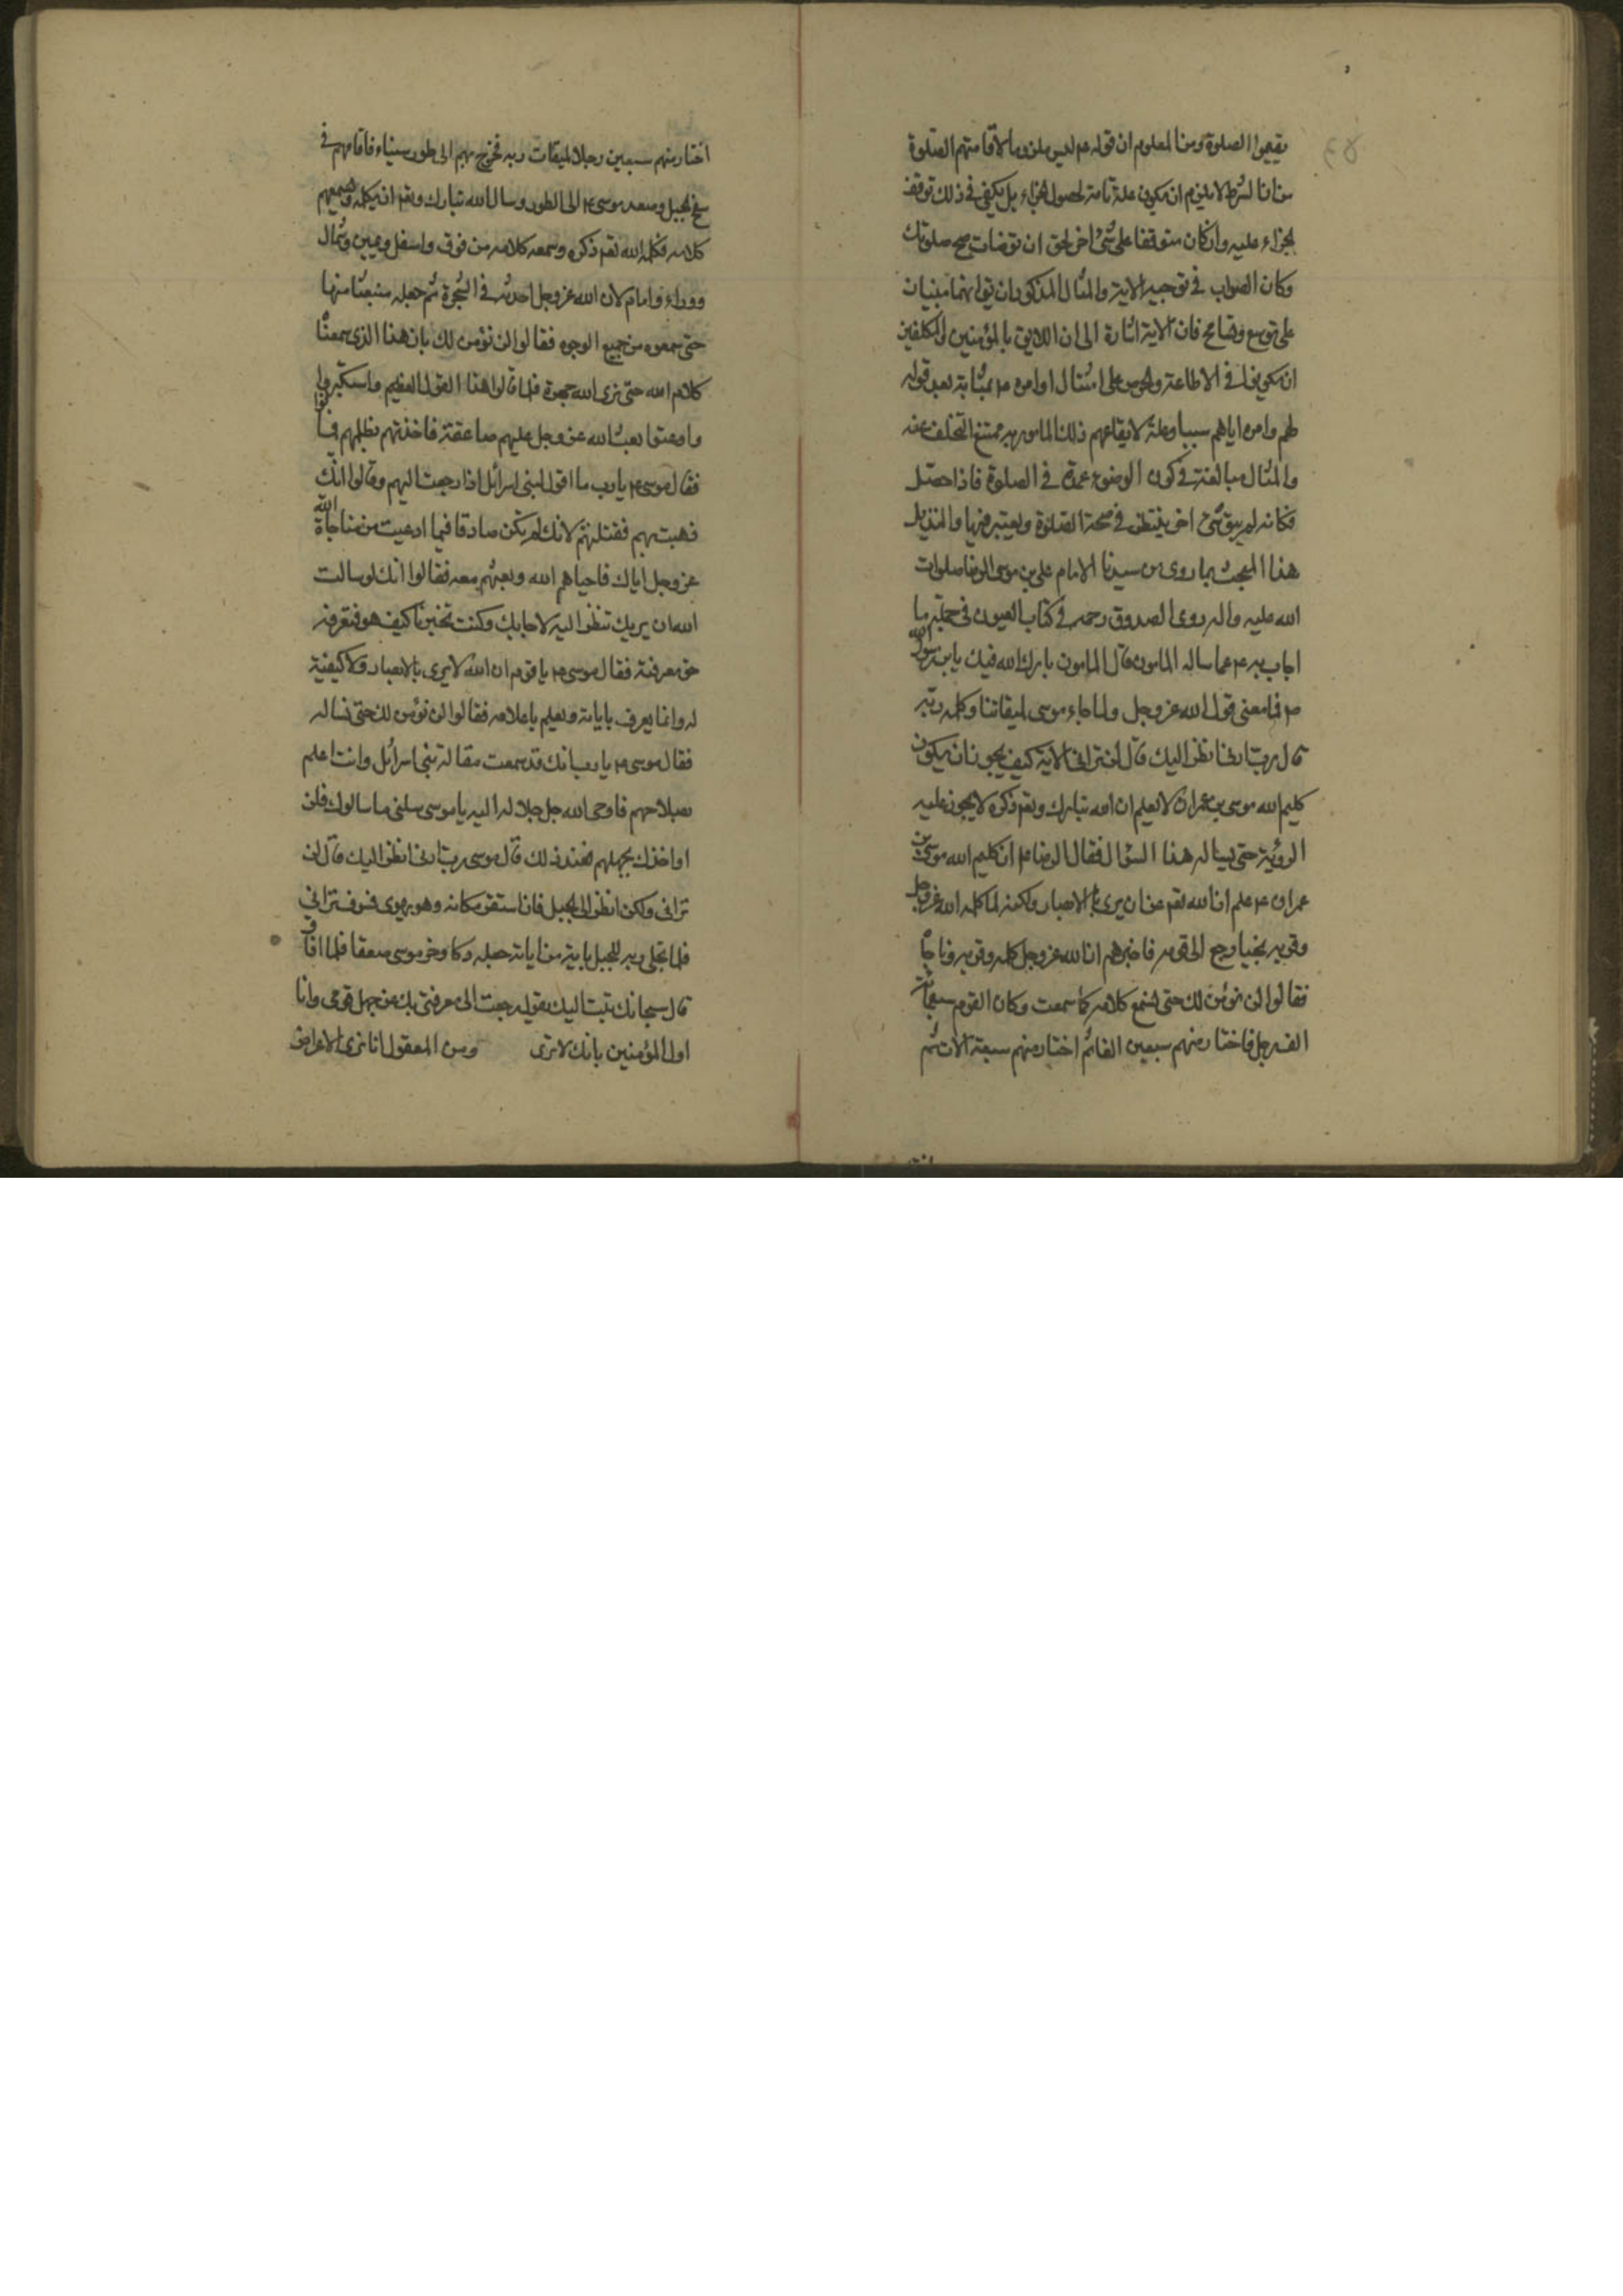 يقيموا الصلوة ومن المعلوم ان قوله عم ليس ملزوما لاقامتهم الصلوة
من ان الشرط لا يلزم ان يكون علة تامة لحصول الجزاء بل يكفى فى ذلك توقف
الجزاء عليه وان كان متوقفا على شئ اخر نحو ان توضات صح صلوتك
وكان الصواب فى توجيه الاية والمثال المذكور ان يقو انهما مبنيان
على توسع وتسامح فان الاية اشارة الى ان اللايق بالمؤمنين المكلفين
ان يكونوا فى الاطاعة والحرص على امتثال اوامره ء م بمثابة يعد قوله
لهم وامره اياهم سببا وعلة لايقاعهم ذلك المامور به يمتنع التخلف عنه
والمثال مبالغة فى كون الوضوء عمدة فى الصلوة فاذا حصل
فكانه لم يبق شئ اخر ينتظر فى صحة الصلوة ويعتبر فيها ولنذيل
هذا المبحث بما روى عن سيدنا الامام على بن موسى الرضا صلوات
الله عليه واله روى الصدوق رحمه فى كتاب العيون فى جملة ما
اجاب به ء م عما ساله المامون قال المامون بارك الله فيك يا بن رسول الله
ص فما معنى قول الله عز وجل ولما جاء موسى لميقاتنا وكلمه ربه
قال رب ارنى انظر اليك قال لن ترانى الاية كيف يجوز ان يكون
كليم الله موسى بن عمران لا يعلم ان الله تبارك وتعم ذكره لا يجوز عليه
الرؤية حتى يساله هذا السؤال فقال الرضا ء م ان كليم الله موسى بن
عمران ء م علم ان الله تعم عن ان يرى بالابصار ولكنه لما كلمه الله عز وجل
وقربه نجيا رجع الى قومه فاخبرهم ان الله عز وجل كلمه وقربه وناجاه
فقالوا لن نؤمن لك حتى نسمع كلامه كما سمعت وكان القوم سبعمائة
الف رجل فاختار منهم سبعين الفا ثم اختار منهم سبعة الاف ثم
اختار منهم سبعين رجلا لميقات ربه فخرج بهم الى طور سيناء فاقامهم فى
سفح الجبل وصعد موسى ء م الى الطور وسال الله تبارك وتعم ان يكلمه ويسمعهم
كلامه فكلمه الله تعم ذكره وسمعوا كلامه من فوق واسفل ويمين وشمال
ووراء وامام لان الله عز وجل احدثه فى الشجرة ثم جعله منبعثا منها
حتى سمعوه من جميع الوجوه فقالوا لن نؤمن لك بان هذا الذى سمعنا
كلام الله حتى نرى الله جهرة فلما قالوا هذا القول العظيم واستكبروا
وعتوا بعث الله عز وجل عليهم صاعقة فاخذتهم بظلمهم فماتوا
فقال موسى ء م يا رب ما اقول لبنى اسرائل اذا رجعت اليهم وقالوا انك
ذهبت بهم فقتلتهم لانك لم تكن صادقا فيما ادعيت من مناجاة الله
عز وجل اياك فاحياهم الله وبعثهم معه فقالوا انك لو سالت
الله ان يريك تنظر اليه لاجابك وكنت تخبرنا كيف هو فنعرفه
حق معرفته فقال موسى ء م يا قوم ان الله لا يرى بالابصار ولا كيفية
له وانما يعرف باياته ويعلم باعلامه فقالوا لن نؤمن لك حتى نساله
فقال موسى ء م يا رب انك قد سمعت مقالة بنى اسرائل وانت اعلم
بصلاحهم فاوحى الله جل جلاله اليه يا موسى سلنى ما سالوك فلن
اواخذك بجهلهم فعند ذلك قال موسى رب ارنى انظر اليك قال لن
ترانى ولكن انظر الى الجبل فان استقر مكانه وهو يهوى فسوف ترانى
فلما تجلى ربه للجبل باية من اياته جعله دكا وخر موسى صعقا فلما افاق
قال سبحانك تبت اليك يقول رجعت الى معرفتى بك عن جهل قومى وانا
اول المؤمنين بانك لا ترى ومن المعقول انا نرى الاعراض